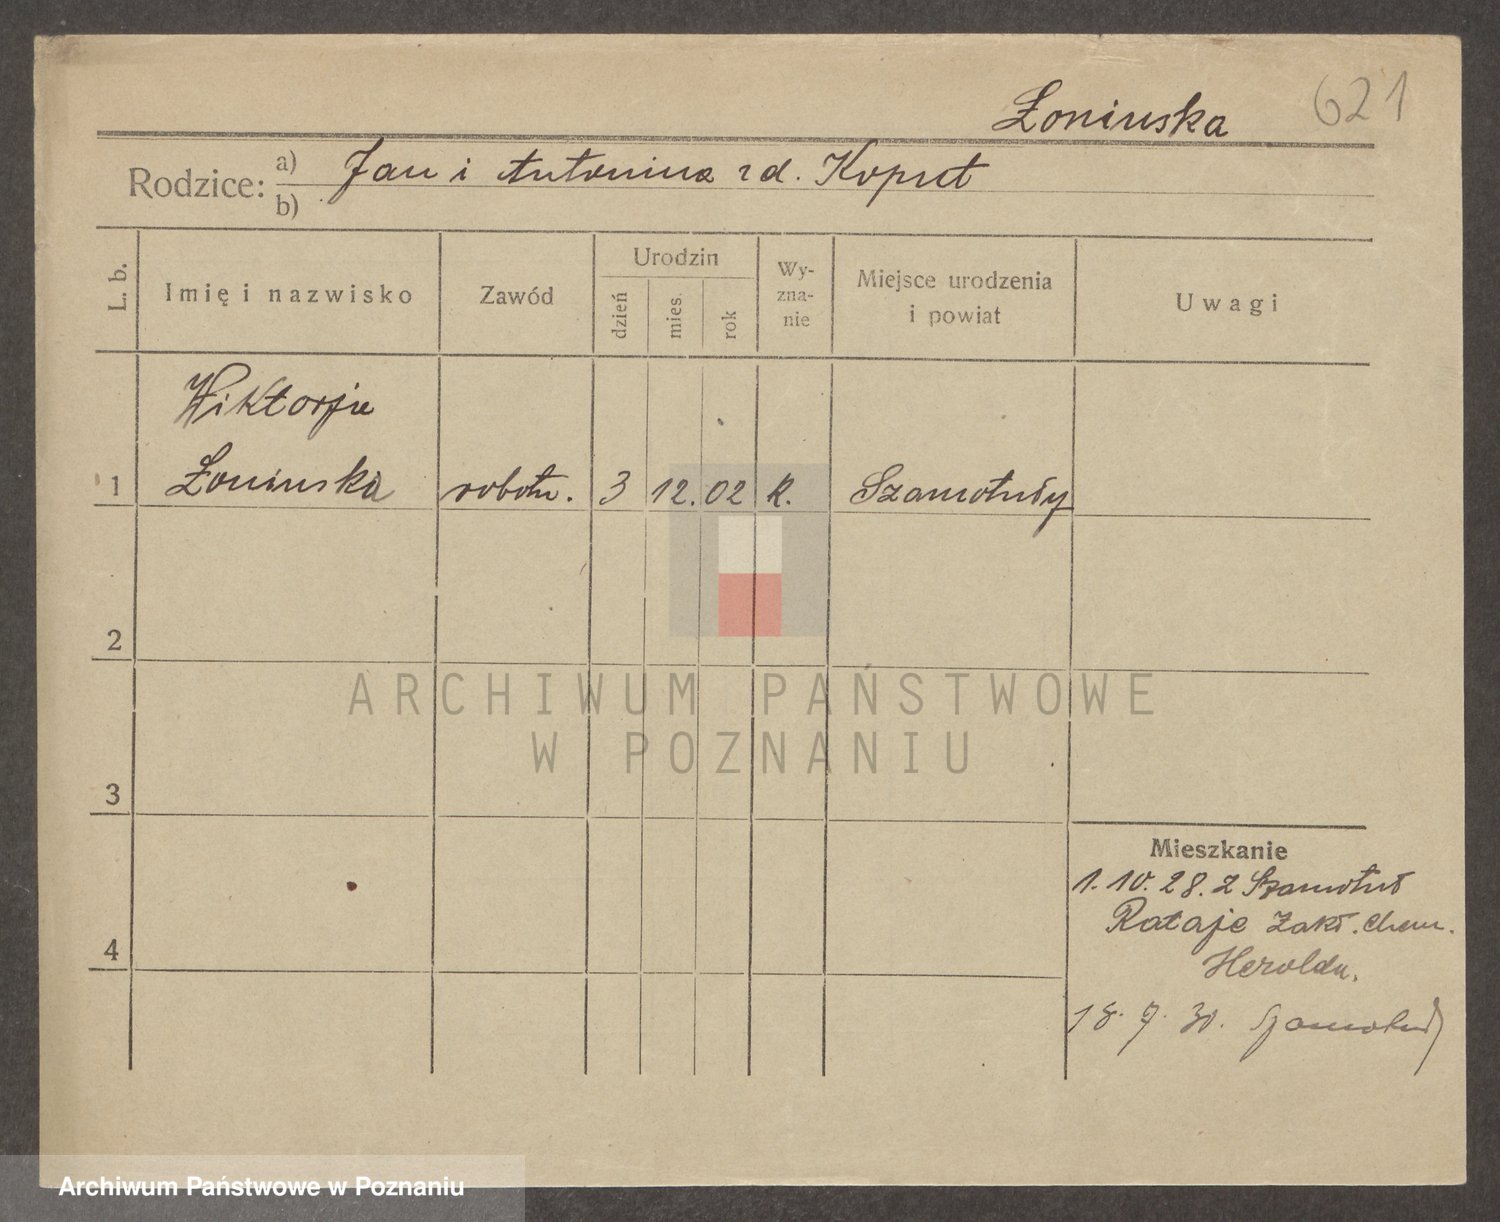 Łoninska 621
Rodzice: a) Jan i Antonina rd. Koput
b)
L. b. Imię i nazwisko Zawód Urodzin dzień mies. rok Wy-zna-nie Miejsce urodzenia i powiat Uwagi
Wiktorja
1 Łoninska robotn. 3 12. 02 k. Szamotuły
2
ARCHIWUM PAŃSTWOWE
W POZNANIU
3
4
Mieszkanie
1. 10. 28. z Szamotuł
Rataje Zakł. Chem.
Herolda.
18. 7. 30. Szamotuły
Archiwum Państwowe w Poznaniu